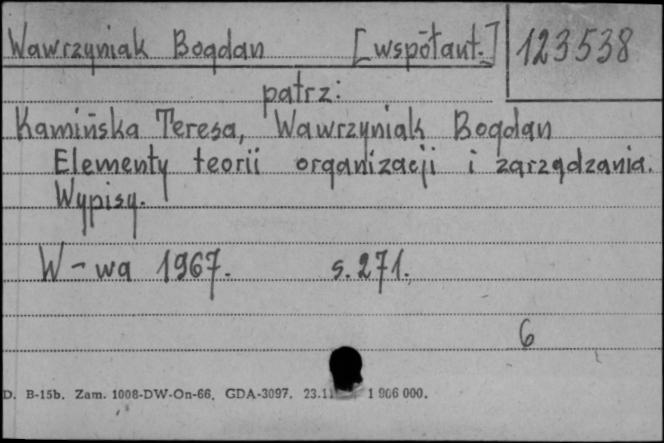 Wawrzyniak Bogdan [współaut.] 123538
patrz:
Kamińska Teresa, Wawrzyniak Bogdan
Elementy teorii organizacji i zarządzania.
Wypisy.
W-wa 1967. s. 271.
6
D. B-15b. Zam. 1008-DW-On-66. GDA-3097. 23.11 1 906 000.